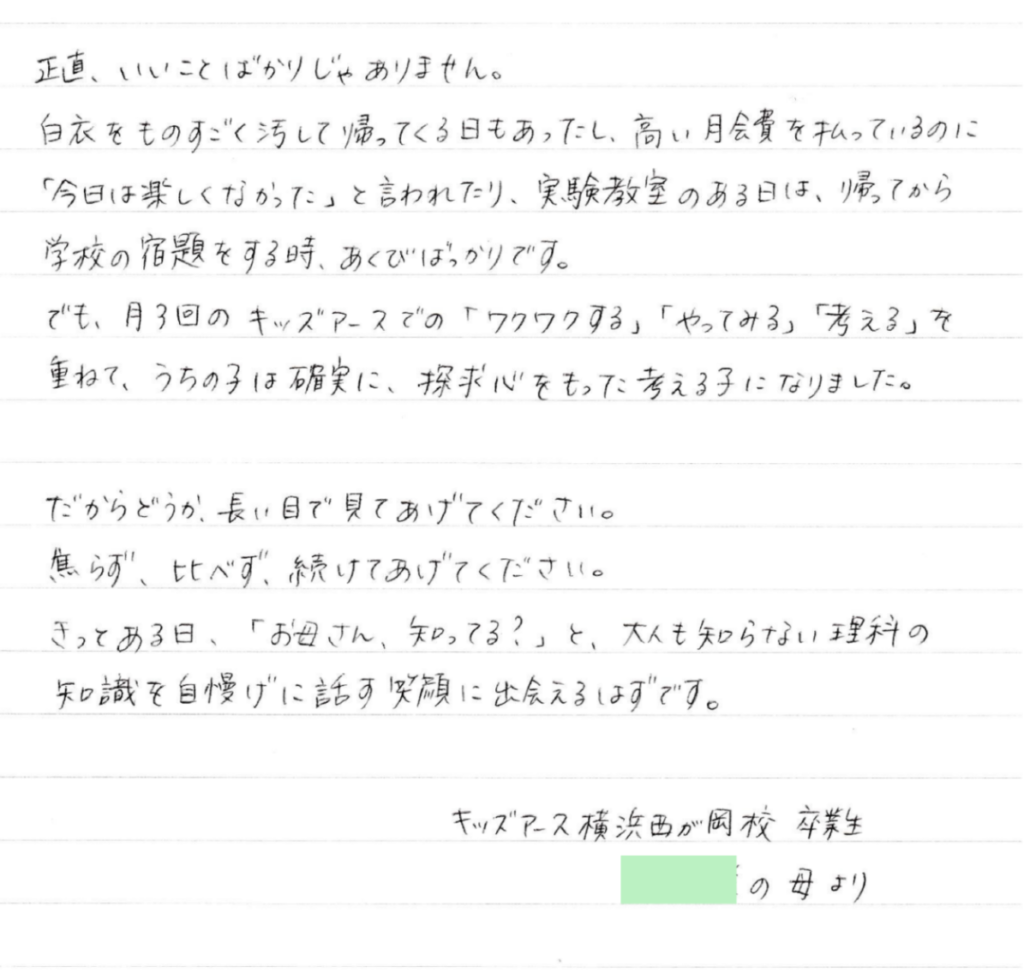 正直、いいことばかりじゃありません。
白衣をものすごく汚して帰ってくる日もあったし、高い月会費を払っているのに
「今日は楽しくなかった」と言われたり、実験教室のある日は、帰ってから
学校の宿題をする時、あくびばっかりです。
でも、月3回のキッズアースでの「ワクワクする」「やってみる」「考える」を
重ねて、うちの子は確実に、探求心をもった考える子になりました。
だからどうか、長い目で見てあげてください。
焦らず、比べず、続けてあげてください。
きっとある日、「お母さん、知ってる?」と、大人も知らない理科の
知識を自慢げに話す笑顔に出会えるはずです。
キッズアース横浜西が岡校 卒業生
の母より